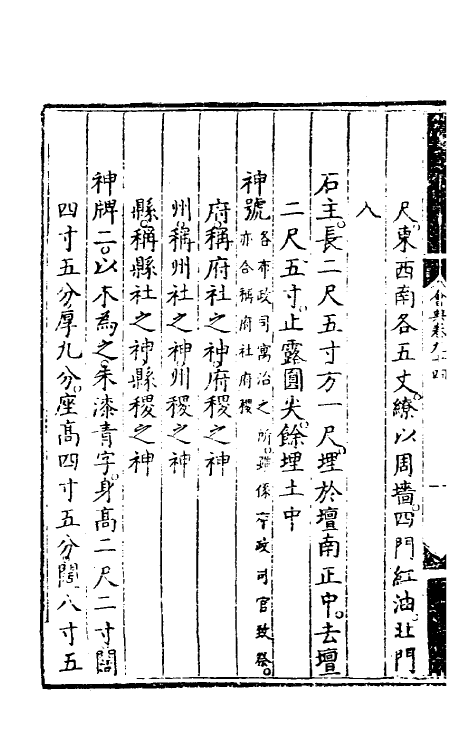 會典卷九十四
尺東西南各五丈繚以周墻四門紅油北門
入
石主長二尺五寸方一尺埋於壇南正中去壇
二尺五寸止露圓尖餘埋土中
神號各布政司寓治之所雖係布政司官致祭亦合稱府社府稷
府稱府社之神府稷之神
州稱州社之神州稷之神
縣稱縣社之神縣稷之神
神牌二以木為之朱漆青字身高二尺二寸闊
四寸五分厚九分座高四寸五分闊八寸五